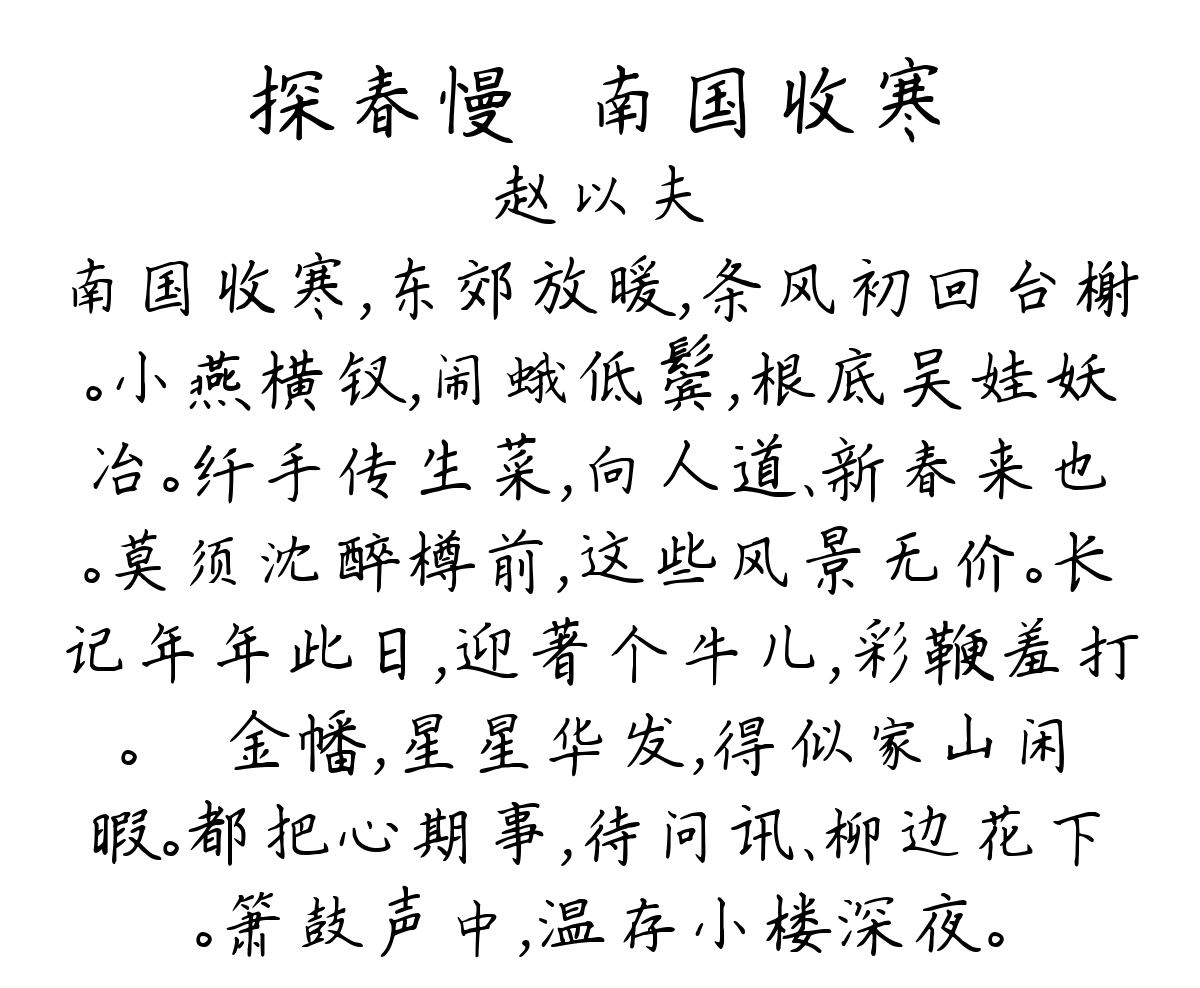 探春慢 南国收寒
赵以夫
南国收寒,东郊放暖,条风初回台榭
。小燕横钗,闹蛾低鬓,根底吴娃妖
冶。纤手传生菜,向人道、新春来也
。莫须沈醉樽前,这些风景无价。长
记年年此日,迎著个牛儿,彩鞭羞打
。 金幡,星星华发,得似家山闲
暇。都把心期事,待问讯、柳边花下
。箫鼓声中,温存小楼深夜。